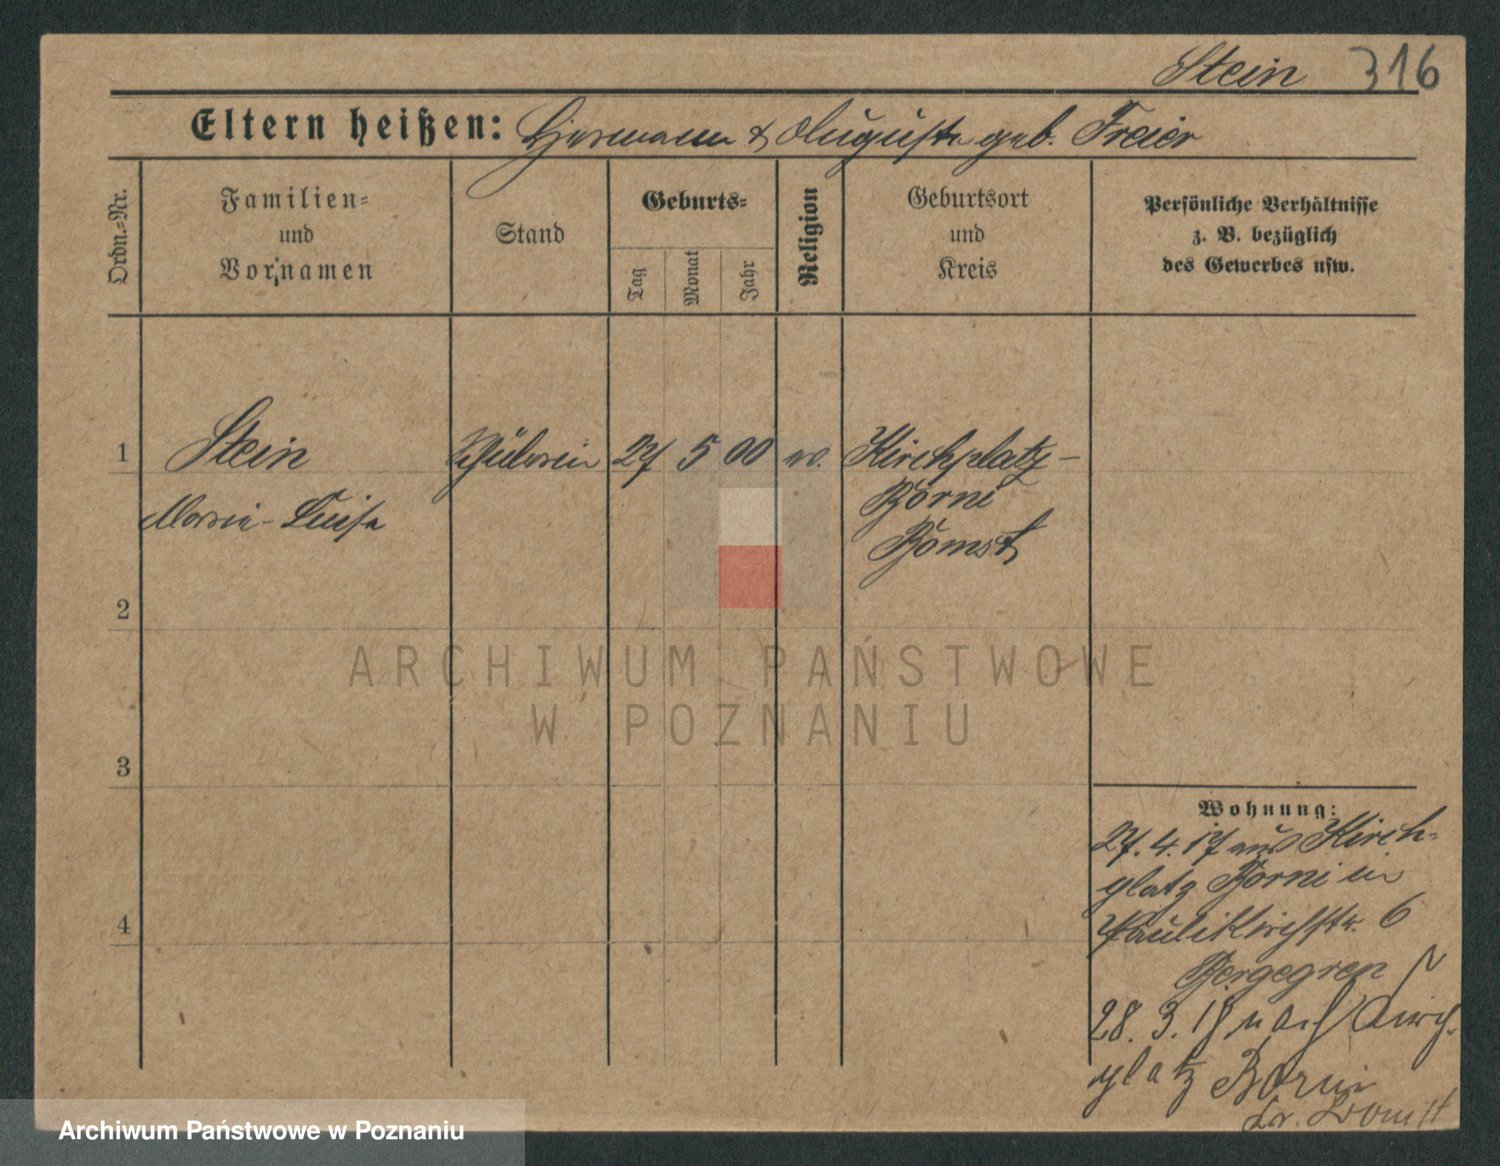 Stein 316
Eltern heißen: Hermann & Auguste geb. Freier
Ordn.-Nr.
Familien-
und
Vornamen
Stand
Geburts-
Tag
Monat
Jahr
Religion
Geburtsort
und
Kreis
Persönliche Verhältnisse
z. B. bezüglich
des Gewerbes usw.
1 Stein Schülerin 27 5 00 ev. Kirchplatz-
Borni
Marie-Luise
Bomst
2
ARCHIWUM PAŃSTWOWE
W POZNANIU
3
Wohnung:
27.4.17 aus Kirch-
platz Borni in
4
Paulikirchstr. 6
Bergegren
28.3.18 nach Kirch-
platz Borni
Kr. Bomst
Archiwum Państwowe w Poznaniu